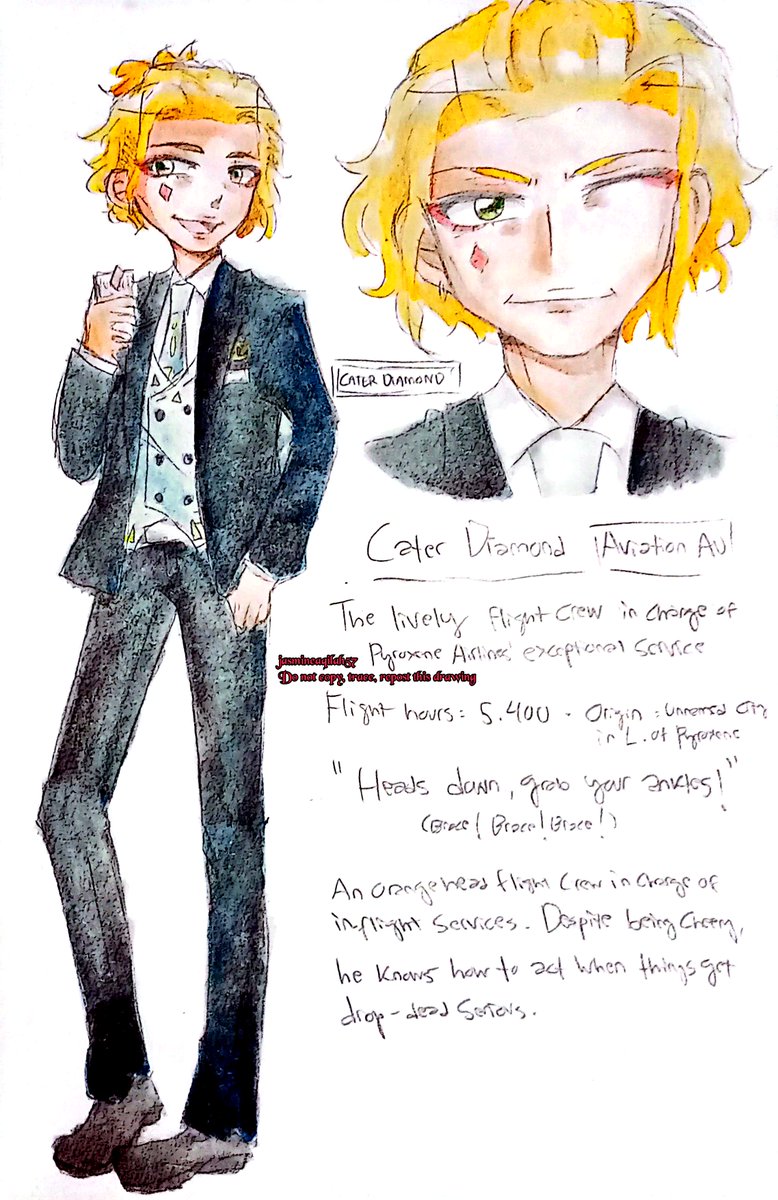 CATER DIAMOND
Cater Diamond Aviation AU
The lively flight crew in charge of
Pyroxene Airlines' exceptional service
jasmineaqilah57
Do not copy, trace, repost this drawing
Flight hours: 5.400 - Origin: Unnamed City
in L. of Pyroxene
"Heads down, grab your ankles!"
(Brace! Brace! Brace!)
An orangehead flight crew in charge of
inflight services. Despite being cheery,
he knows how to act when things get
drop-dead serious.